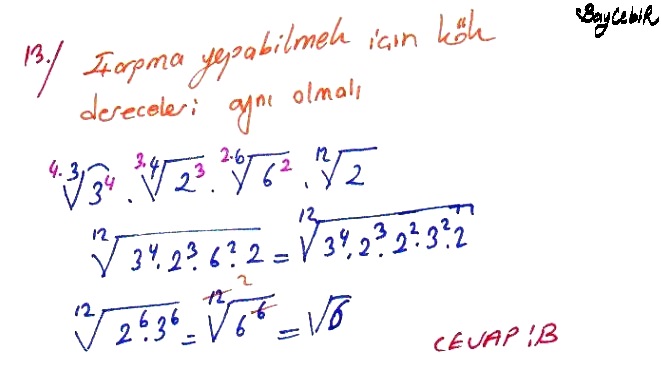 BayCebiR
13./ Çarpma yapabilmek için kök
dereceleri aynı olmalı
⁴·³√3⁴ · ³·⁴√2³ · ²·⁶√6² · ¹²√2
¹²√3⁴·2³·6²·2 = ¹²√3⁴·2³·2²·3²·2
¹²√2⁶·3⁶ = ¹²√6⁶ 2 = √6
CEVAP:B